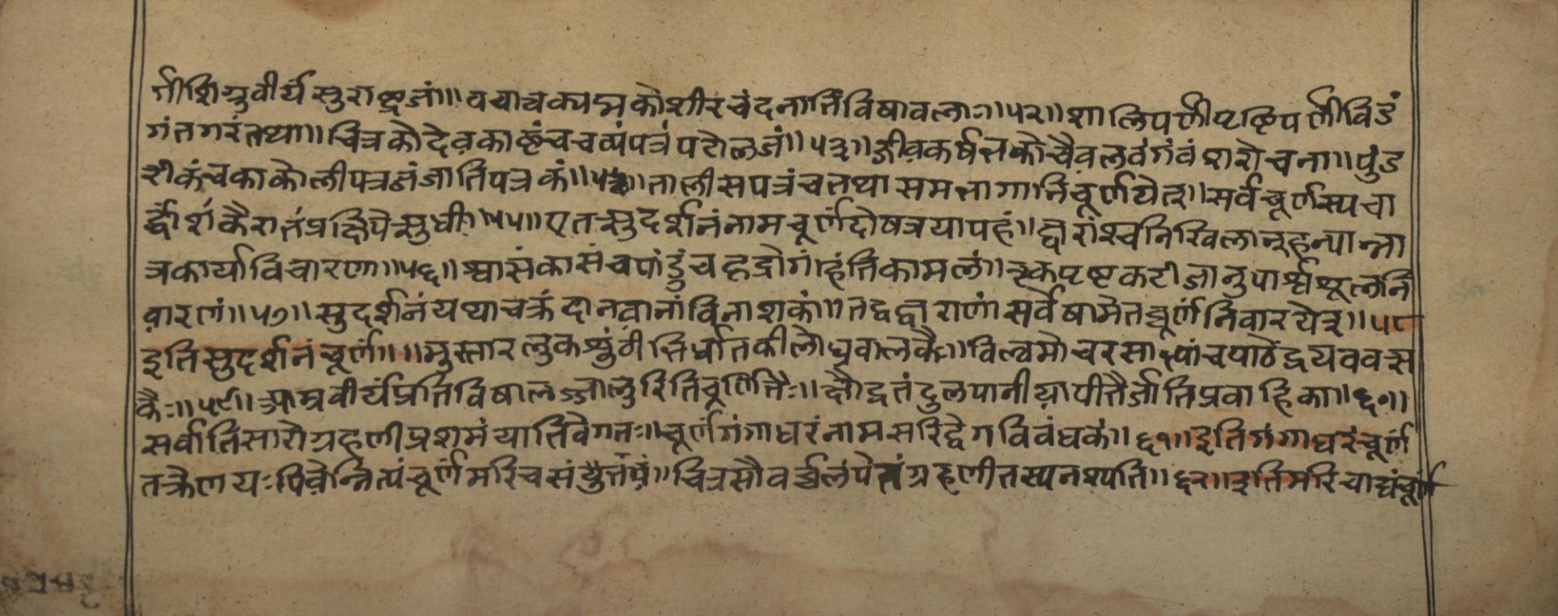 र्गीशिग्रुवीर्यसुराष्ट्रजां॥वचात्वक्पद्मकोशीरचंदनातिविषावलाः॥५२॥शालिपर्णीपृष्टिपर्णीविडं
गंतगरंतथा॥चित्रकोदेवकाष्टंचचव्यंपत्रंपटोलजं॥५३॥जीवकर्षभकोचैवलवंगंवंशरोचना॥पुंड
रीकंचकाकोलीपत्रजंजातिपत्रकं॥५४॥तालीसपत्रंचतथासमभागानिचूर्णयेत्॥सर्वचूर्णस्यचा
र्द्धांशंकैरातंप्रक्षिपेत्सुधीः॥५५॥एतत्सुदर्शनंनामचूर्णंदोषत्रयापहं॥ज्वरांश्चनिखिलान्हन्यान्ना
त्रकार्याविचारणा॥५६॥श्वासंकासंचपांडुंचहृद्रोगंहंतिकामलां॥तृकपृष्टकटीजानुपार्श्वशूलनि
वारणं॥५७॥सुदर्शनंयथाचक्रंदानवानांविनाशकं॥तद्वज्ज्वराणांसर्वेषामेतच्चूर्णंनिवारयेत्॥५८
इतिसुदर्शनंचूर्णं॥॥मुस्तारलुकशुंठीभिर्धातकीलोध्रवालकैः॥विल्वमोचरसाभ्यांचपाठेंद्रयववत्स
कैः॥५९॥आम्रवीर्यंप्रतिविषालज्जालुरितिचूर्णितैः॥क्षौद्रतंदुलपानीयापीतैर्जातिप्रवाहिका॥६०॥
सर्वातिसारोग्रहणीप्रशमंयातिवेगतः॥चूर्णंगंगाधरंनामसरिद्वेगविवंधकं॥६१॥इतिगंगाधरंचूर्णं
तक्रेणयःपिवेन्नित्यंचूर्णंमरिचसंयुतं॥चित्रसौवर्च्चलंपेतंग्रहणीतस्यनश्यति॥६२॥इतिमरिचाद्यंचूर्णं